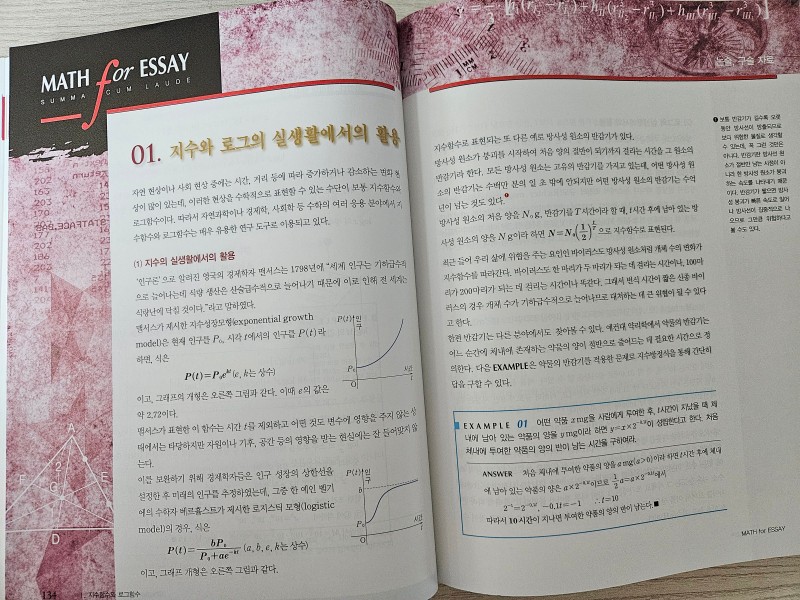 MATH for ESSAY
SUMMA CUM LAUDE
01. 지수와 로그의 실생활에서의 활용
자연 현상이나 사회 현상 중에는 시간, 거리 등에 따라 증가하거나 감소하는 변화 현
상이 많이 있는데, 이러한 현상을 수학적으로 표현할 수 있는 수단이 보통 지수함수와
로그함수이다. 따라서 자연과학이나 경제학, 사회학 등 수학의 여러 응용 분야에서 지
수함수와 로그함수는 매우 유용한 연구 도구로 이용되고 있다.
(1) 지수의 실생활에서의 활용
'인구론'으로 알려진 영국의 경제학자 맬서스는 1798년에 "세계 인구는 기하급수적
으로 늘어나는데 식량 생산은 산술급수적으로 늘어나기 때문에 이로 인해 전 세계는
식량난에 닥칠 것이다."라고 말하였다.
맬서스가 제시한 지수성장모형(exponential growth
model)은 현재 인구를 P₀, 시각 t에서의 인구를 P(t)라
하면, 식은
P(t)=P₀eᵏᵗ (e, k는 상수)
이고, 그래프의 개형은 오른쪽 그림과 같다. 이때 e의 값은
약 2.72이다.
P(t) 인구
P₀
O
시간
t
맬서스가 표현한 이 함수는 시간 t를 제외하고 어떤 것도 변수에 영향을 주지 않는 상
태에서는 타당하지만 자원이나 기후, 공간 등의 영향을 받는 현실에는 잘 들어맞지 않
는다.
이를 보완하기 위해 경제학자들은 인구 성장의 상한선을
설정한 후 미래의 인구를 추정하였는데, 그중 한 예인 벨기
에의 수학자 베르흘스트가 제시한 로지스틱 모형(logistic
model)의 경우, 식은
P(t)=bP₀/(P₀+ae⁻ᵏᵗ) (a, b, e, k는 상수)
이고, 그래프 개형은 오른쪽 그림과 같다.
P(t) 인구
b
P₀
O
시간
t
134 Ⅰ. 지수함수와 로그함수
논술, 구술 자료
지수함수로 표현되는 또 다른 예로 방사성 원소의 반감기가 있다.
방사성 원소가 붕괴를 시작하여 처음 양의 절반이 되기까지 걸리는 시간을 그 원소의
반감기라 한다. 모든 방사성 원소는 고유의 반감기를 가지고 있는데, 어떤 방사성 원
소의 반감기는 수백만 분의 일 초 밖에 안되지만 어떤 방사성 원소의 반감기는 수억
년이 넘는 것도 있다.❶
방사성 원소의 처음 양을 N₀ g, 반감기를 T시간이라 할 때, t시간 후에 남아 있는 방
사성 원소의 양을 N g이라 하면 N=N₀(1/2)^(t/T) 으로 지수함수로 표현된다.
최근 들어 우리 삶에 위협을 주는 요인인 바이러스도 방사성 원소처럼 개체 수의 변화가
지수함수를 따라간다. 바이러스도 한 마리가 두 마리가 되는 데 걸리는 시간이나, 100마
리가 200마리가 되는 데 걸리는 시간이나 똑같다. 그래서 번식 시간이 짧은 신종 바이
러스의 경우 개체 수가 기하급수적으로 늘어나므로 대처하는 데 큰 위협이 될 수 있다
고 한다.
한편 반감기는 다른 분야에서도 찾아볼 수 있다. 예컨대 약리학에서 약물의 반감기는
어느 순간에 체내에 존재하는 약물의 양이 절반으로 줄어드는 데 필요한 시간으로 정
의한다. 다음 EXAMPLE은 약물의 반감기를 적용한 문제로 지수방정식을 통해 간단히
답을 구할 수 있다.
❶ 보통 반감기가 길수록 오랫
동안 방사선이 방출되므로
보다 위험한 물질로 생각할
수 있는데, 꼭 그런 것만은
아니다. 반감기란 방사선 원
소가 절반만 남는 시점이 아
니라 한 방사선 원소가 붕괴
하는 속도를 나타내기 때문
이다. 반감기가 짧으면 방사
성 붕괴가 빠른 속도로 일어
나 방사선이 집중적으로 나
오므로 그만큼 위험하다고
볼 수도 있다.
EXAMPLE 01 어떤 약품 x mg을 사람에게 투여한 후, t시간이 지났을 때 체
내에 남아 있는 약품의 양을 y mg이라 하면 y=x×2^(-0.1t)이 성립한다고 한다. 처음
체내에 투여한 약품의 양의 반이 남는 시간을 구하여라.
ANSWER 처음 체내에 투여한 약품의 양을 a mg(a>0)이라 하면 t시간 후에 체내
에 남아 있는 약품의 양은 a×2^(-0.1t)이므로 1/2 a=a×2^(-0.1t)에서
2⁻¹=2^(-0.1t), -0.1t=-1 ∴ t=10
따라서 10시간이 지나면 투여한 약품의 양의 반이 남는다.■
MATH for ESSAY